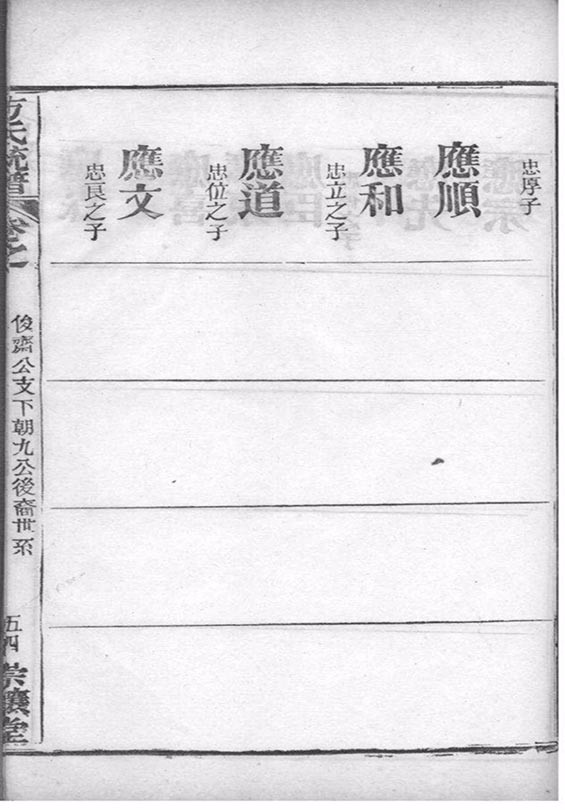 忠厚子
應順
應和
忠立之子
應道
忠位之子
應文
忠良之子
方氏統譜
卷之
俊齋公支下朝九公後裔世系
五四